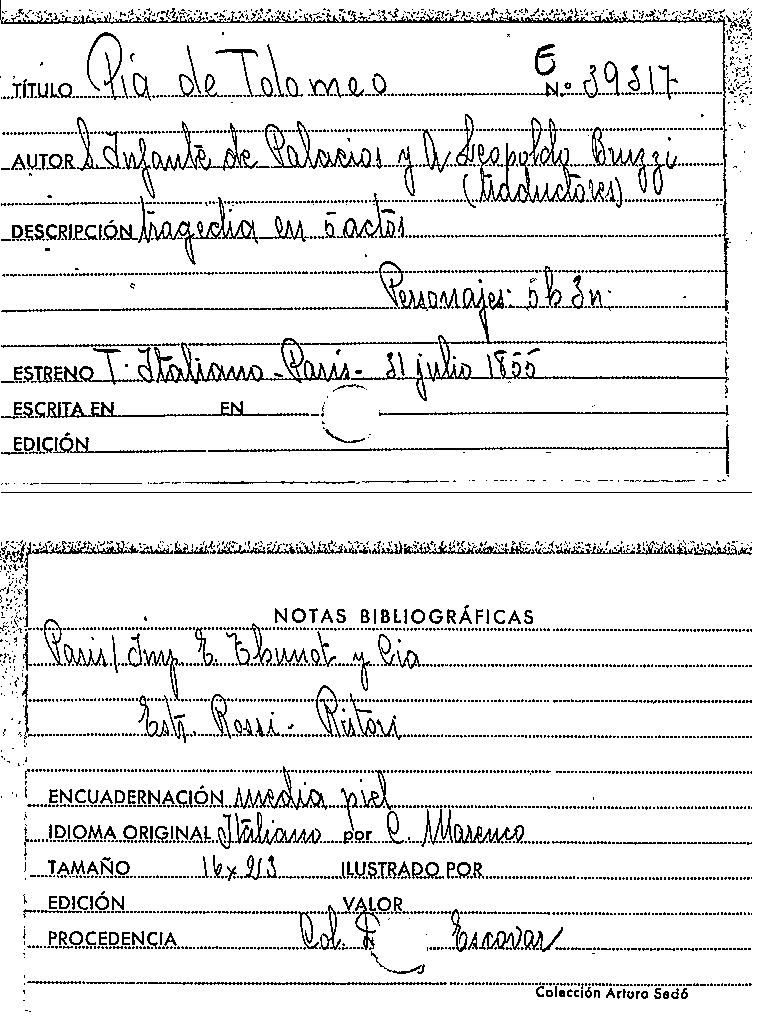 TÍTULO Pia de Tolomeo E N.º 39317
AUTOR L Infante de Palacios y A Leopoldo Bruzzi
(traductores)
DESCRIPCIÓN tragedia en 5 actos
Personajes: 5h 3n.
ESTRENO T. Italiano - Paris - 31 julio 1855
ESCRITA EN EN
EDICIÓN
NOTAS BIBLIOGRÁFICAS
Paris / Imp E. Thunot y Cia
Estr. Rossi - Ristori
ENCUADERNACIÓN media piel
IDIOMA ORIGINAL Italiano por C. Marenco
TAMAÑO 16 x ILUSTRADO POR
EDICIÓN VALOR
PROCEDENCIA Col. Escovar
Colección Arturo Sedó